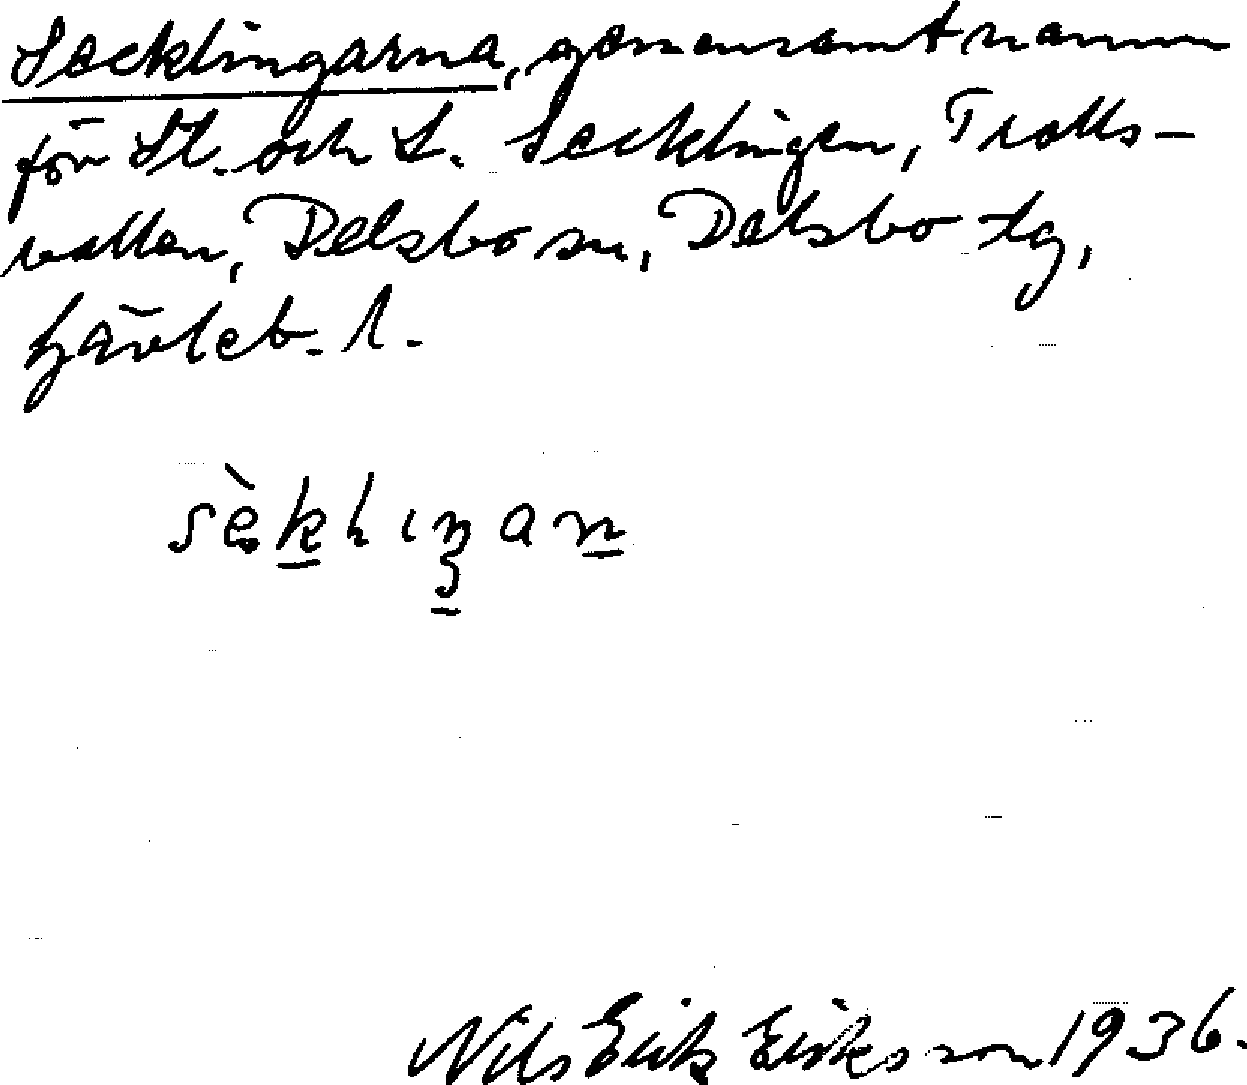 Secklingarna, gemensamt namn
för St. och L. Secklingen, Trolls-
vallen, Delsbo sn, Delsbo tg,
Gävleb. l.
Nils Erik Eriksson 1936.